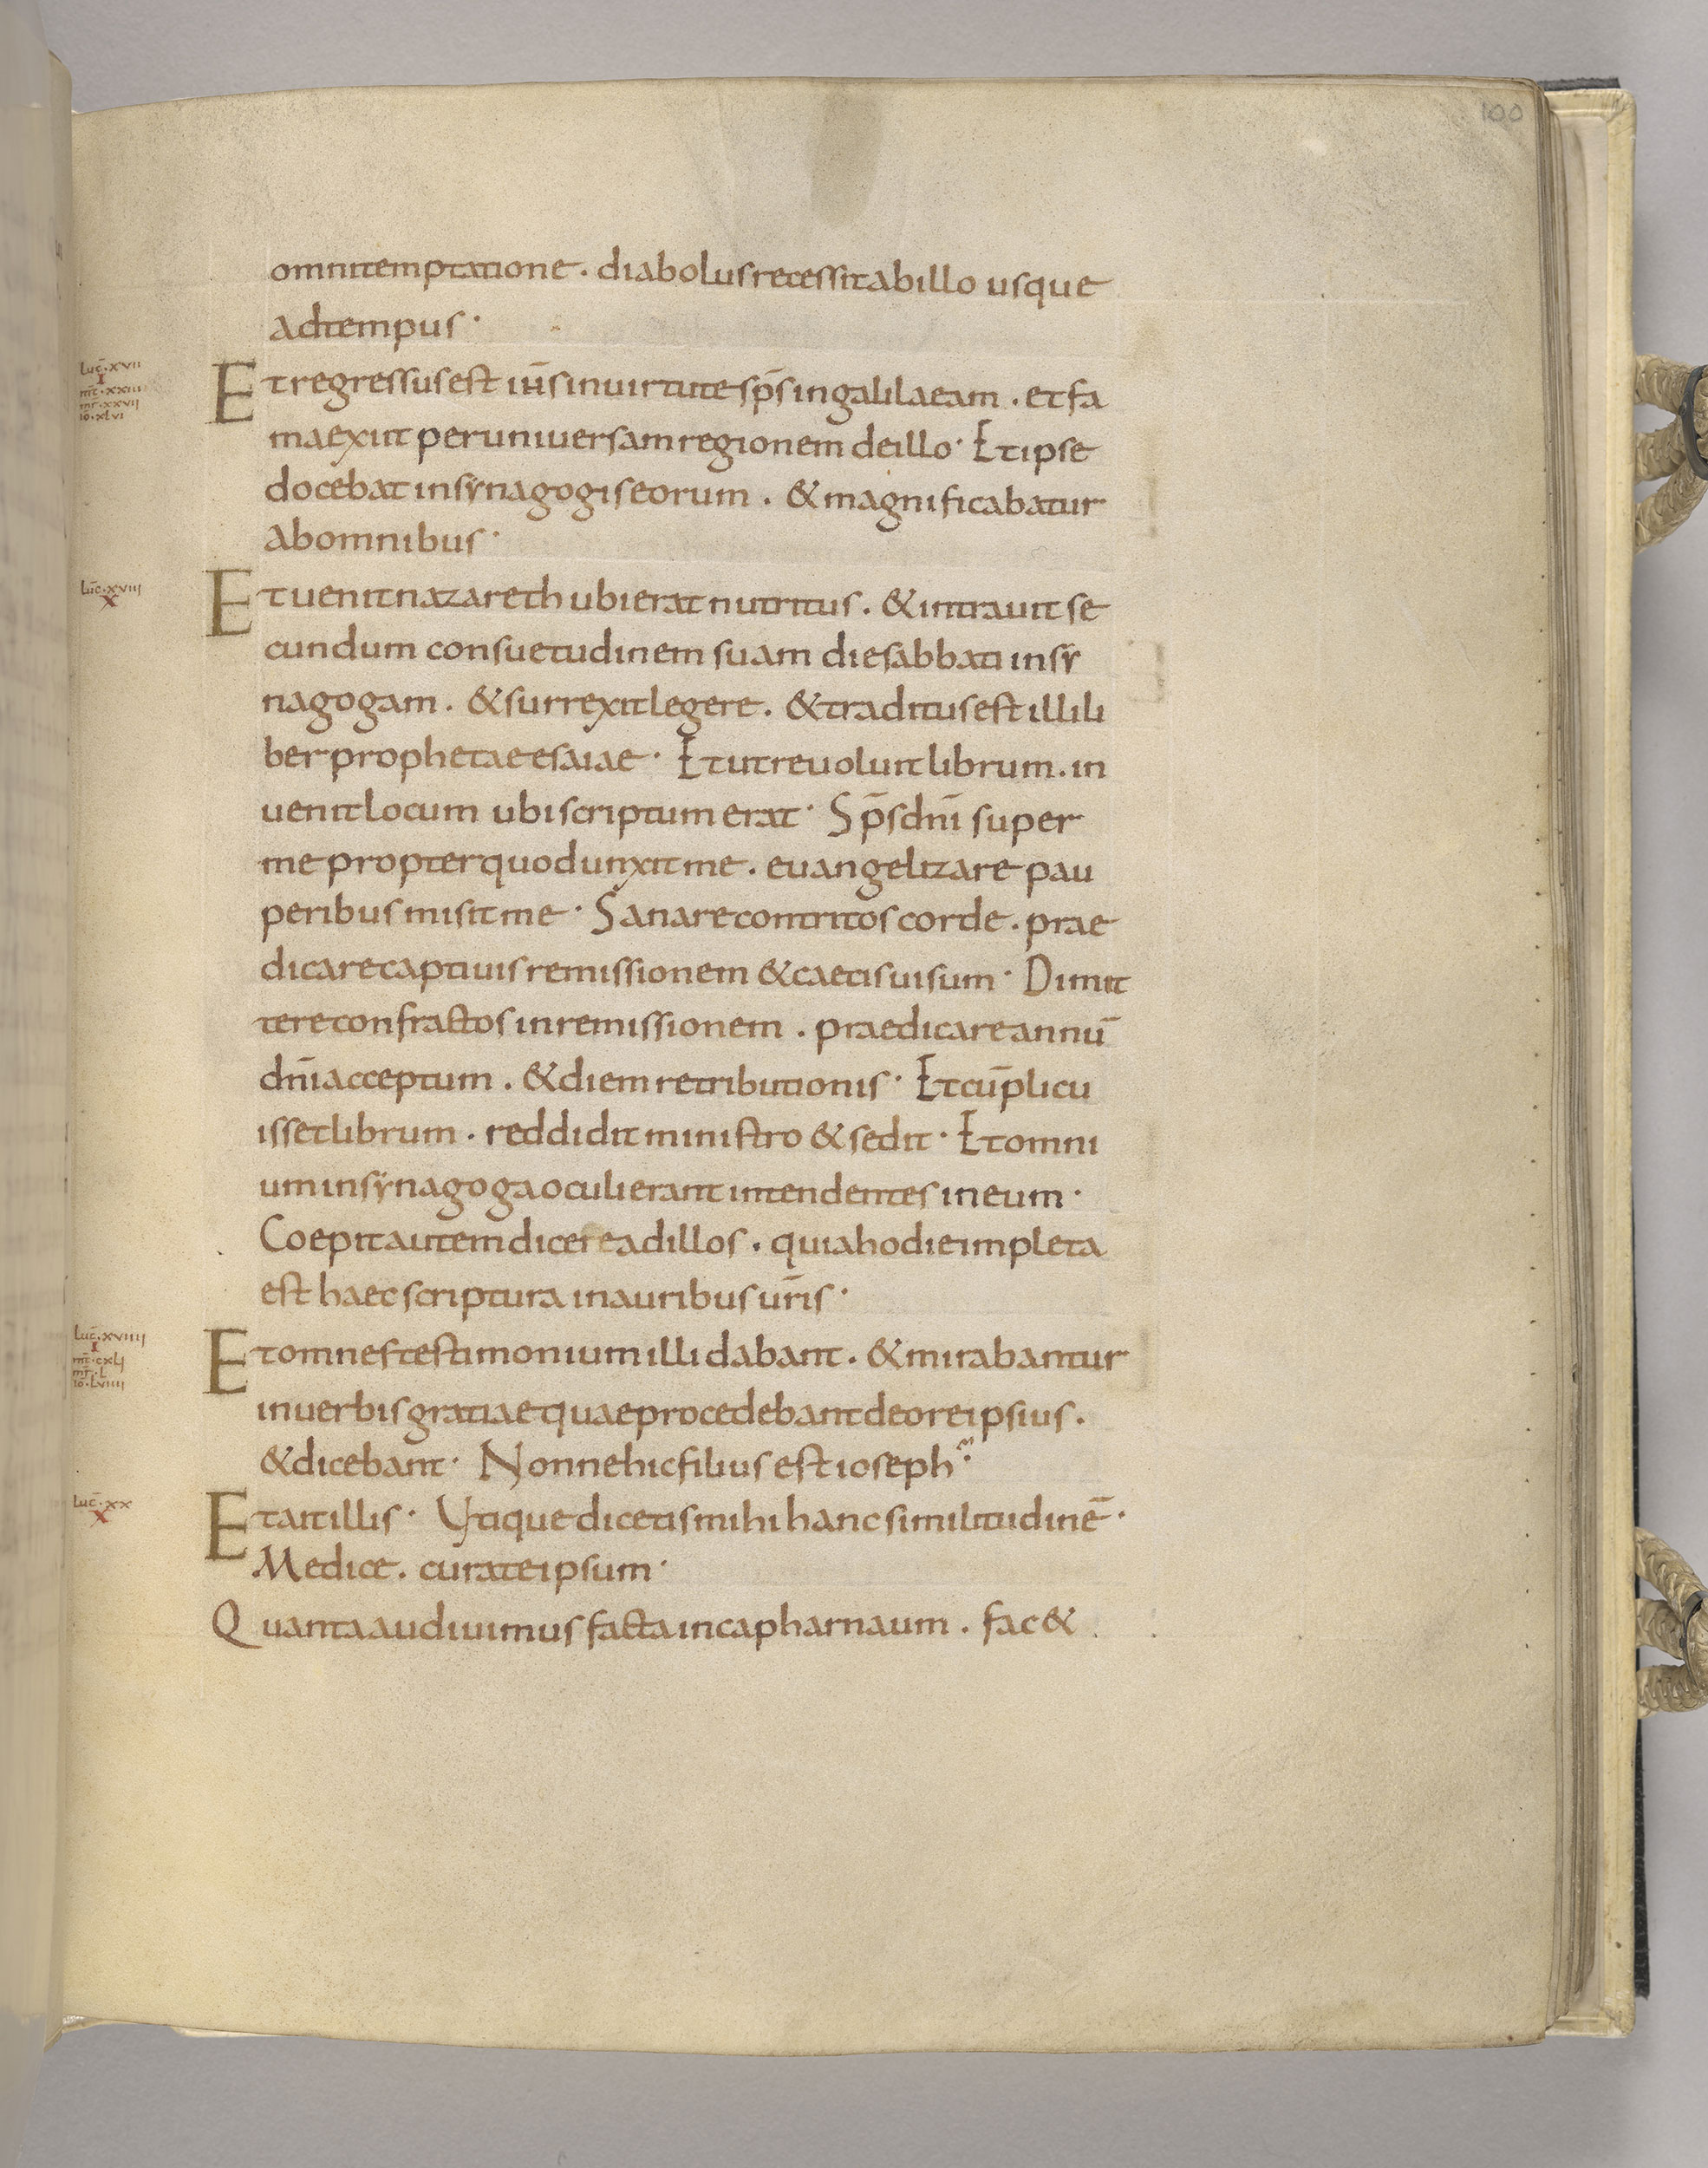 100
omni temptatione . diabolus recessit ab illo usque
ad tempus ·
Luc̄ . xvii
I
mt̄ . xxiii
mr . xxvii
io . xlvi
Et regressus est ih̄s in uirtute sp̄s in galilaeam . et fa
ma exiit per uniuersam regionem de illo · Et ipse
docebat in synagogis eorum . & magnificabatur
ab omnibus ·
Luc̄ . xviii
X
Et uenit nazareth ubi erat nutritus . & intrauit se
cundum consuetudinem suam die sabbati in sy
nagogam . & surrexit legere . & traditus est illi li
ber prophetae esaiae · Et ut reuoluit librum . in
uenit locum ubi scriptum erat · Sp̄s dn̄i super
me propter quod unxit me . euangelizare pau
peribus misit me · Sanare contritos corde . prae
dicare captiuis remissionem & caecis uisum · Dimit
tere confractos in remissionem . praedicare annū
dn̄i acceptum . & diem retributionis · Et cū plicu
isset librum . reddidit ministro & sedit · Et omni
um in synagoga oculi erant intendentes in eum ·
Coepit autem dicere ad illos . quia hodie impleta
est haec scriptura in auribus ur̄is ·
Luc̄ . xviiii
I
mt̄ . cxli
mr̄ . L
io . Lviiii
Et omnes testimonium illi dabant . & mirabantur
in uerbis gratiae quae procedebant de ore ipsius .
& dicebant · Nonne hic filius est ioseph ·
Luc̄ . xx
X
Et ait illis · Utique dicetis mihi hanc similitudinē ·
Medice . cura te ipsum ·
Quanta audiuimus facta in capharnaum . fac &